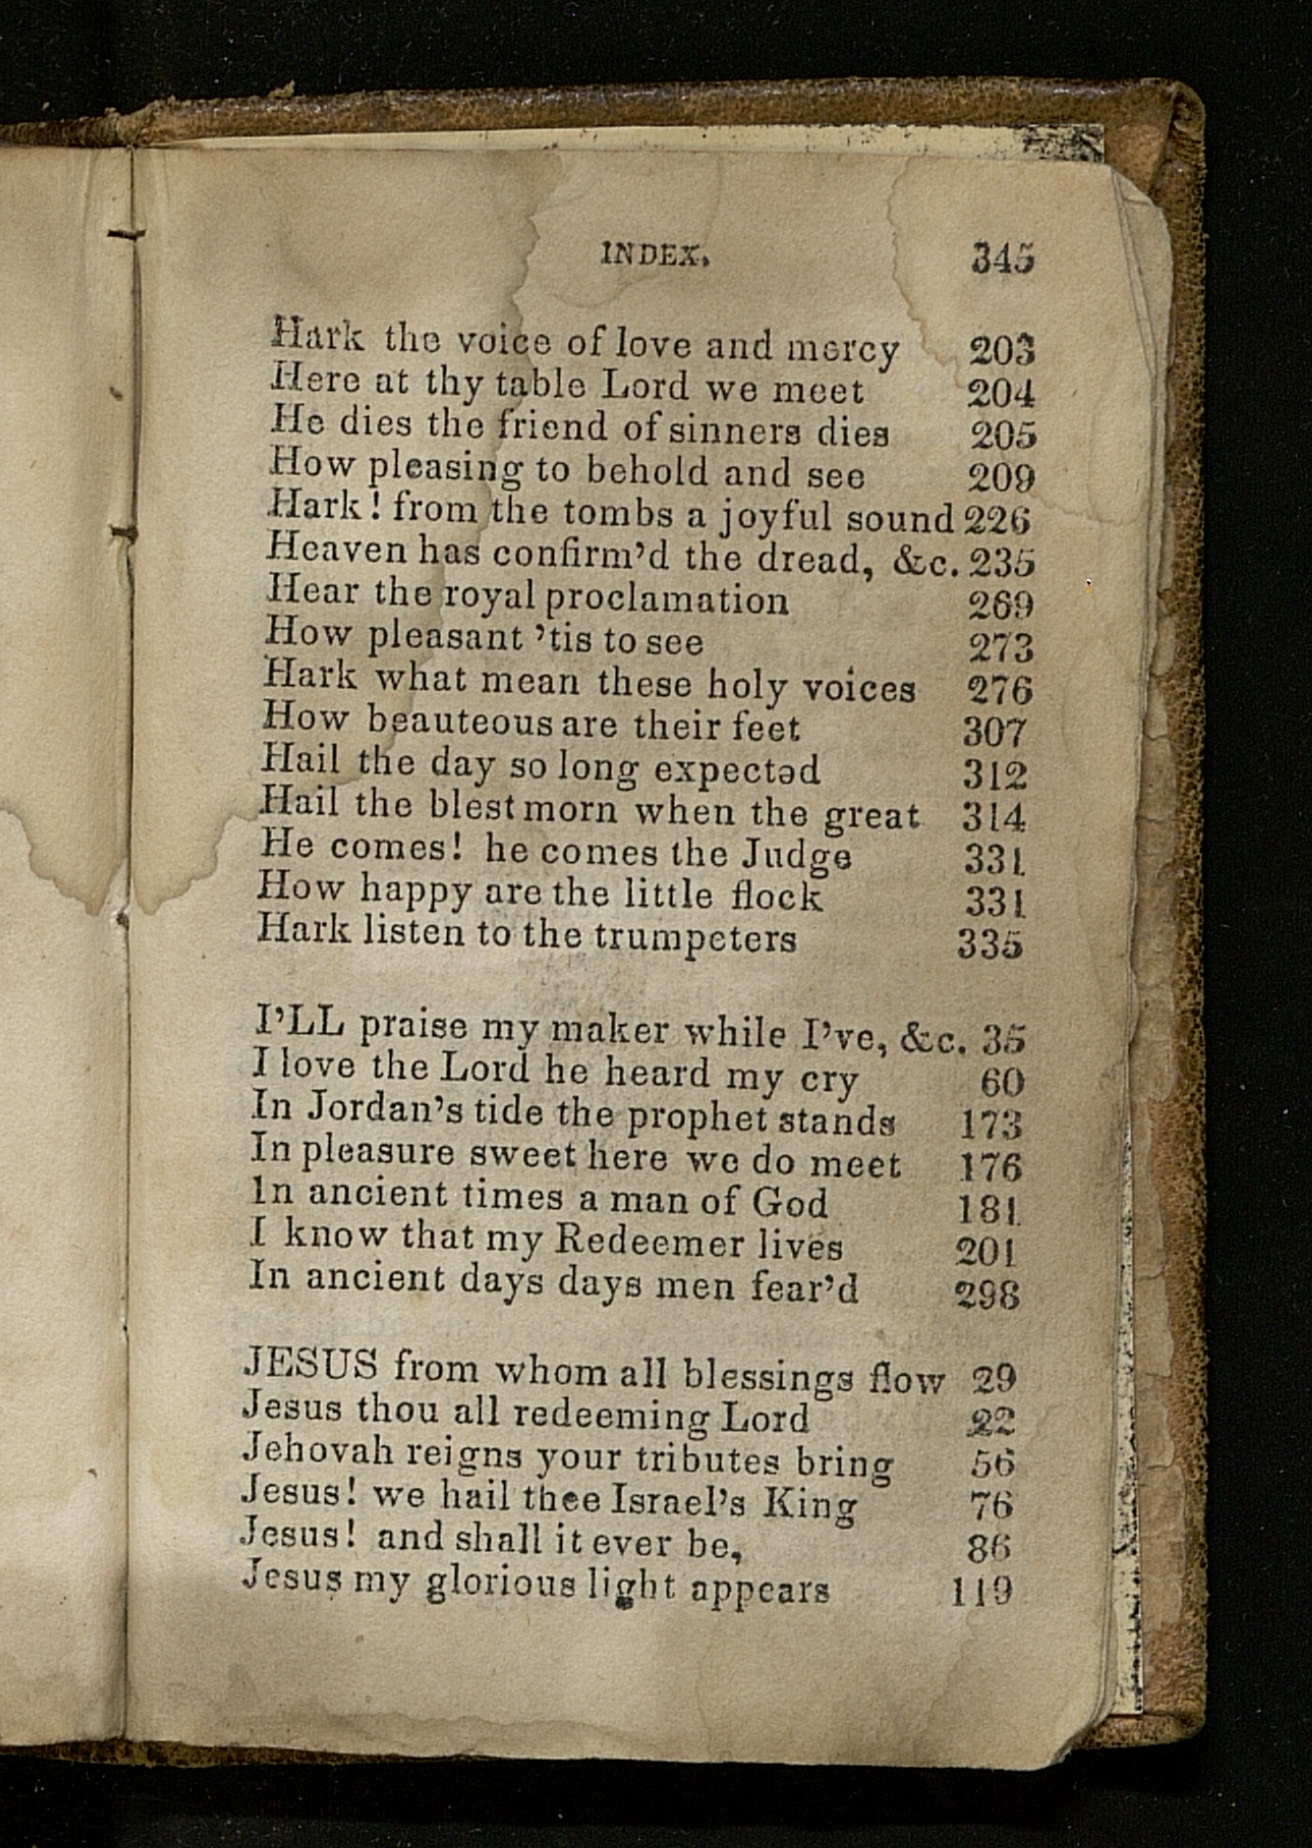 INDEX. 345
Hark the voice of love and mercy 203
Here at thy table Lord we meet 204
He dies the friend of sinners dies 205
How pleasing to behold and see 209
Hark! from the tombs a joyful sound 226
Heaven has confirm'd the dread, &c. 235
Hear the royal proclamation 269
How pleasant 'tis to see 273
Hark what mean these holy voices 276
How beauteous are their feet 307
Hail the day so long expected 312
Hail the blest morn when the great 314
He comes! he comes the Judge 331
How happy are the little flock 331
Hark listen to the trumpeters 335
I'LL praise my maker while I've, &c. 35
I love the Lord he heard my cry 60
In Jordan's tide the prophet stands 173
In pleasure sweet here we do meet 176
In ancient times a man of God 181
I know that my Redeemer lives 201
In ancient days days men fear'd 298
JESUS from whom all blessings flow 29
Jesus thou all redeeming Lord 22
Jehovah reigns your tributes bring 56
Jesus! we hail thee Israel's King 76
Jesus! and shall it ever be, 86
Jesus my glorious light appears 119